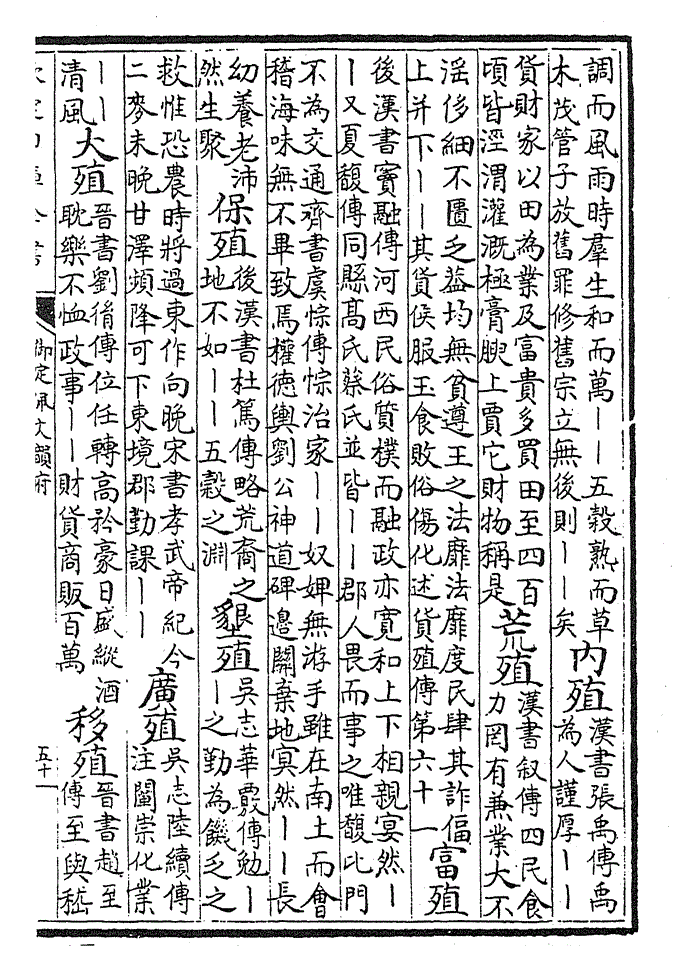 調而風雨時羣生和而萬——五榖熟而草
木茂管子放舊罪修舊宗立無後則——矣
内殖
漢書張禹傳禹
為人謹厚——
貨財家以田為業及富貴多買田至四百
頃皆涇渭灌溉極膏腴上賈它財物稱是
荒殖
漢書叙傳四民食
力罔有兼業大不
淫侈細不匱乏葢均無貧遵王之法靡法靡度民肆其詐偪
上并下——其貨侯服玉食敗俗傷化述貨殖傳第六十一
富殖
後漢書竇融傳河西民俗質樸而融政亦寛和上下相親宴然—
—又夏馥傳同縣髙氏蔡氏並皆——郡人畏而事之唯馥比門
不為交通齊書虞悰傳悰治家——奴婢無游手雖在南土而會
稽海味無不畢致焉權德輿劉公神道碑邊關棄地㝠然——長
幼養老沛
然生聚
保殖
後漢書杜篤傳略荒裔之
地不如——五穀之淵
墾殖
吳志華覈傳勉—
—之勤為饑乏之
救惟恐農時將過東作向晚宋書孝武帝紀今
二麥未晚甘澤頻降可下東境郡勤課——
廣殖
吳志陸續傳
注闡崇化業
——
清風
大殖
晉書劉胤傳位任轉高矜豪日盛縱酒
耽樂不恤政事——財貨商販百萬
移殖
晉書趙至
傳至與嵇
欽定四庫全書
御定佩文韻府
五十一